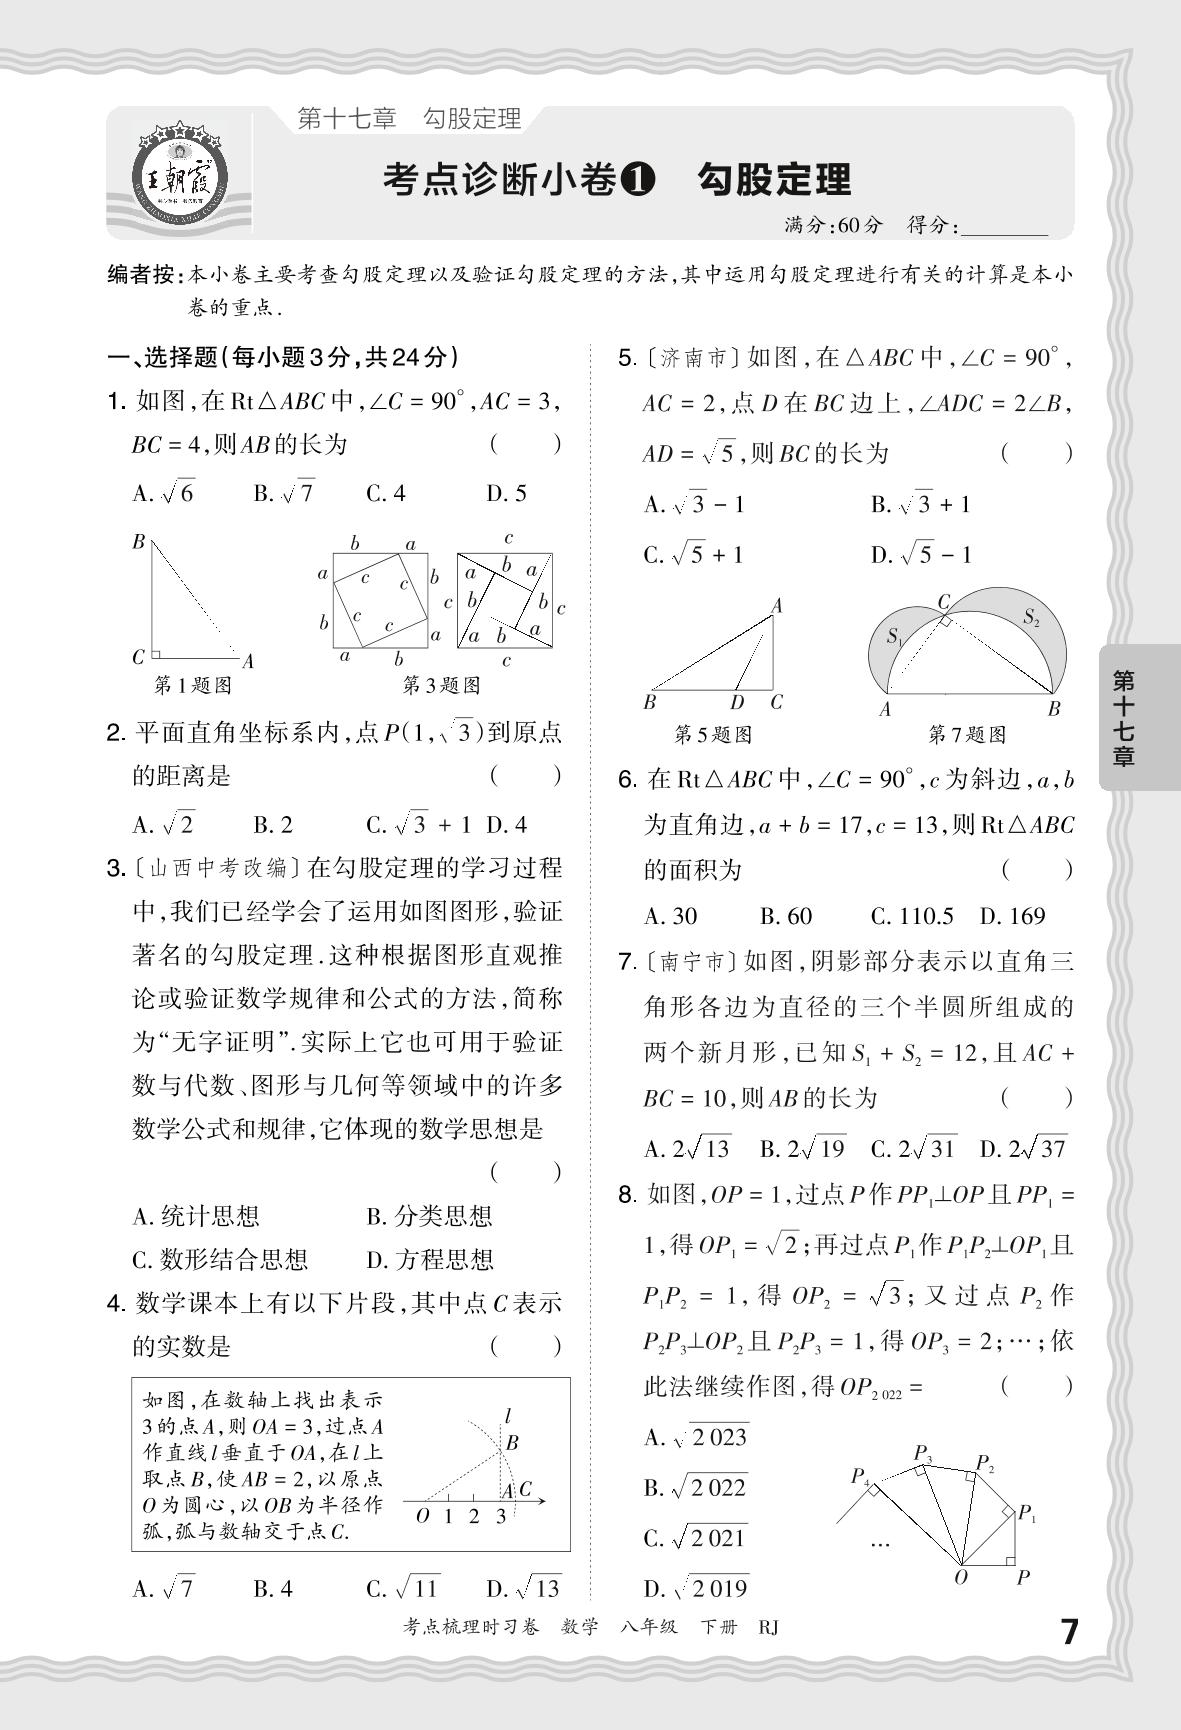 第十七章　勾股定理
王朝霞
考点诊断小卷❶　勾股定理
满分:60分　得分:________
编者按:本小卷主要考查勾股定理以及验证勾股定理的方法,其中运用勾股定理进行有关的计算是本小
卷的重点.
一、选择题(每小题3分,共24分)
1. 如图,在Rt△ABC中,∠C=90°,AC=3,
BC=4,则AB的长为　(　　)
A. √6　B. √7　C. 4　D. 5
B
C
A
第1题图
b a
a c c b
b c c a
a b
c
a b a
c b b c
a b a
c
第3题图
2. 平面直角坐标系内,点P(1,√3)到原点
的距离是　(　　)
A. √2　B. 2　C. √3+1　D. 4
3.〔山西中考改编〕在勾股定理的学习过程
中,我们已经学会了运用如图图形,验证
著名的勾股定理.这种根据图形直观推
论或验证数学规律和公式的方法,简称
为“无字证明”.实际上它也可用于验证
数与代数、图形与几何等领域中的许多
数学公式和规律,它体现的数学思想是
(　　)
A. 统计思想　B. 分类思想
C. 数形结合思想　D. 方程思想
4. 数学课本上有以下片段,其中点C表示
的实数是　(　　)
如图,在数轴上找出表示
3的点A,则OA=3,过点A
作直线l垂直于OA,在l上
取点B,使AB=2,以原点
O为圆心,以OB为半径作
弧,弧与数轴交于点C.
l
B
A C
O 1 2 3
A. √7　B. 4　C. √11　D. √13
5.〔济南市〕如图,在△ABC中,∠C=90°,
AC=2,点D在BC边上,∠ADC=2∠B,
AD=√5,则BC的长为　(　　)
A. √3−1　B. √3+1
C. √5+1　D. √5−1
A
B D C
第5题图
C
S₁ S₂
A B
第7题图
6. 在Rt△ABC中,∠C=90°,c为斜边,a,b
为直角边,a+b=17,c=13,则Rt△ABC
的面积为　(　　)
A. 30　B. 60　C. 110.5　D. 169
7.〔南宁市〕如图,阴影部分表示以直角三
角形各边为直径的三个半圆所组成的
两个新月形,已知S₁+S₂=12,且AC+
BC=10,则AB的长为　(　　)
A. 2√13　B. 2√19　C. 2√31　D. 2√37
8. 如图,OP=1,过点P作PP₁⊥OP且PP₁=
1,得OP₁=√2;再过点P₁作P₁P₂⊥OP₁且
P₁P₂=1,得OP₂=√3;又过点P₂作
P₂P₃⊥OP₂且P₂P₃=1,得OP₃=2;…;依
此法继续作图,得OP₂ ₀₂₂=　(　　)
A. √2 023
B. √2 022
C. √2 021
D. √2 019
P₄ P₃ P₂
P₁
…
O P
第十七章
考点梳理时习卷　数学　八年级　下册　RJ
7